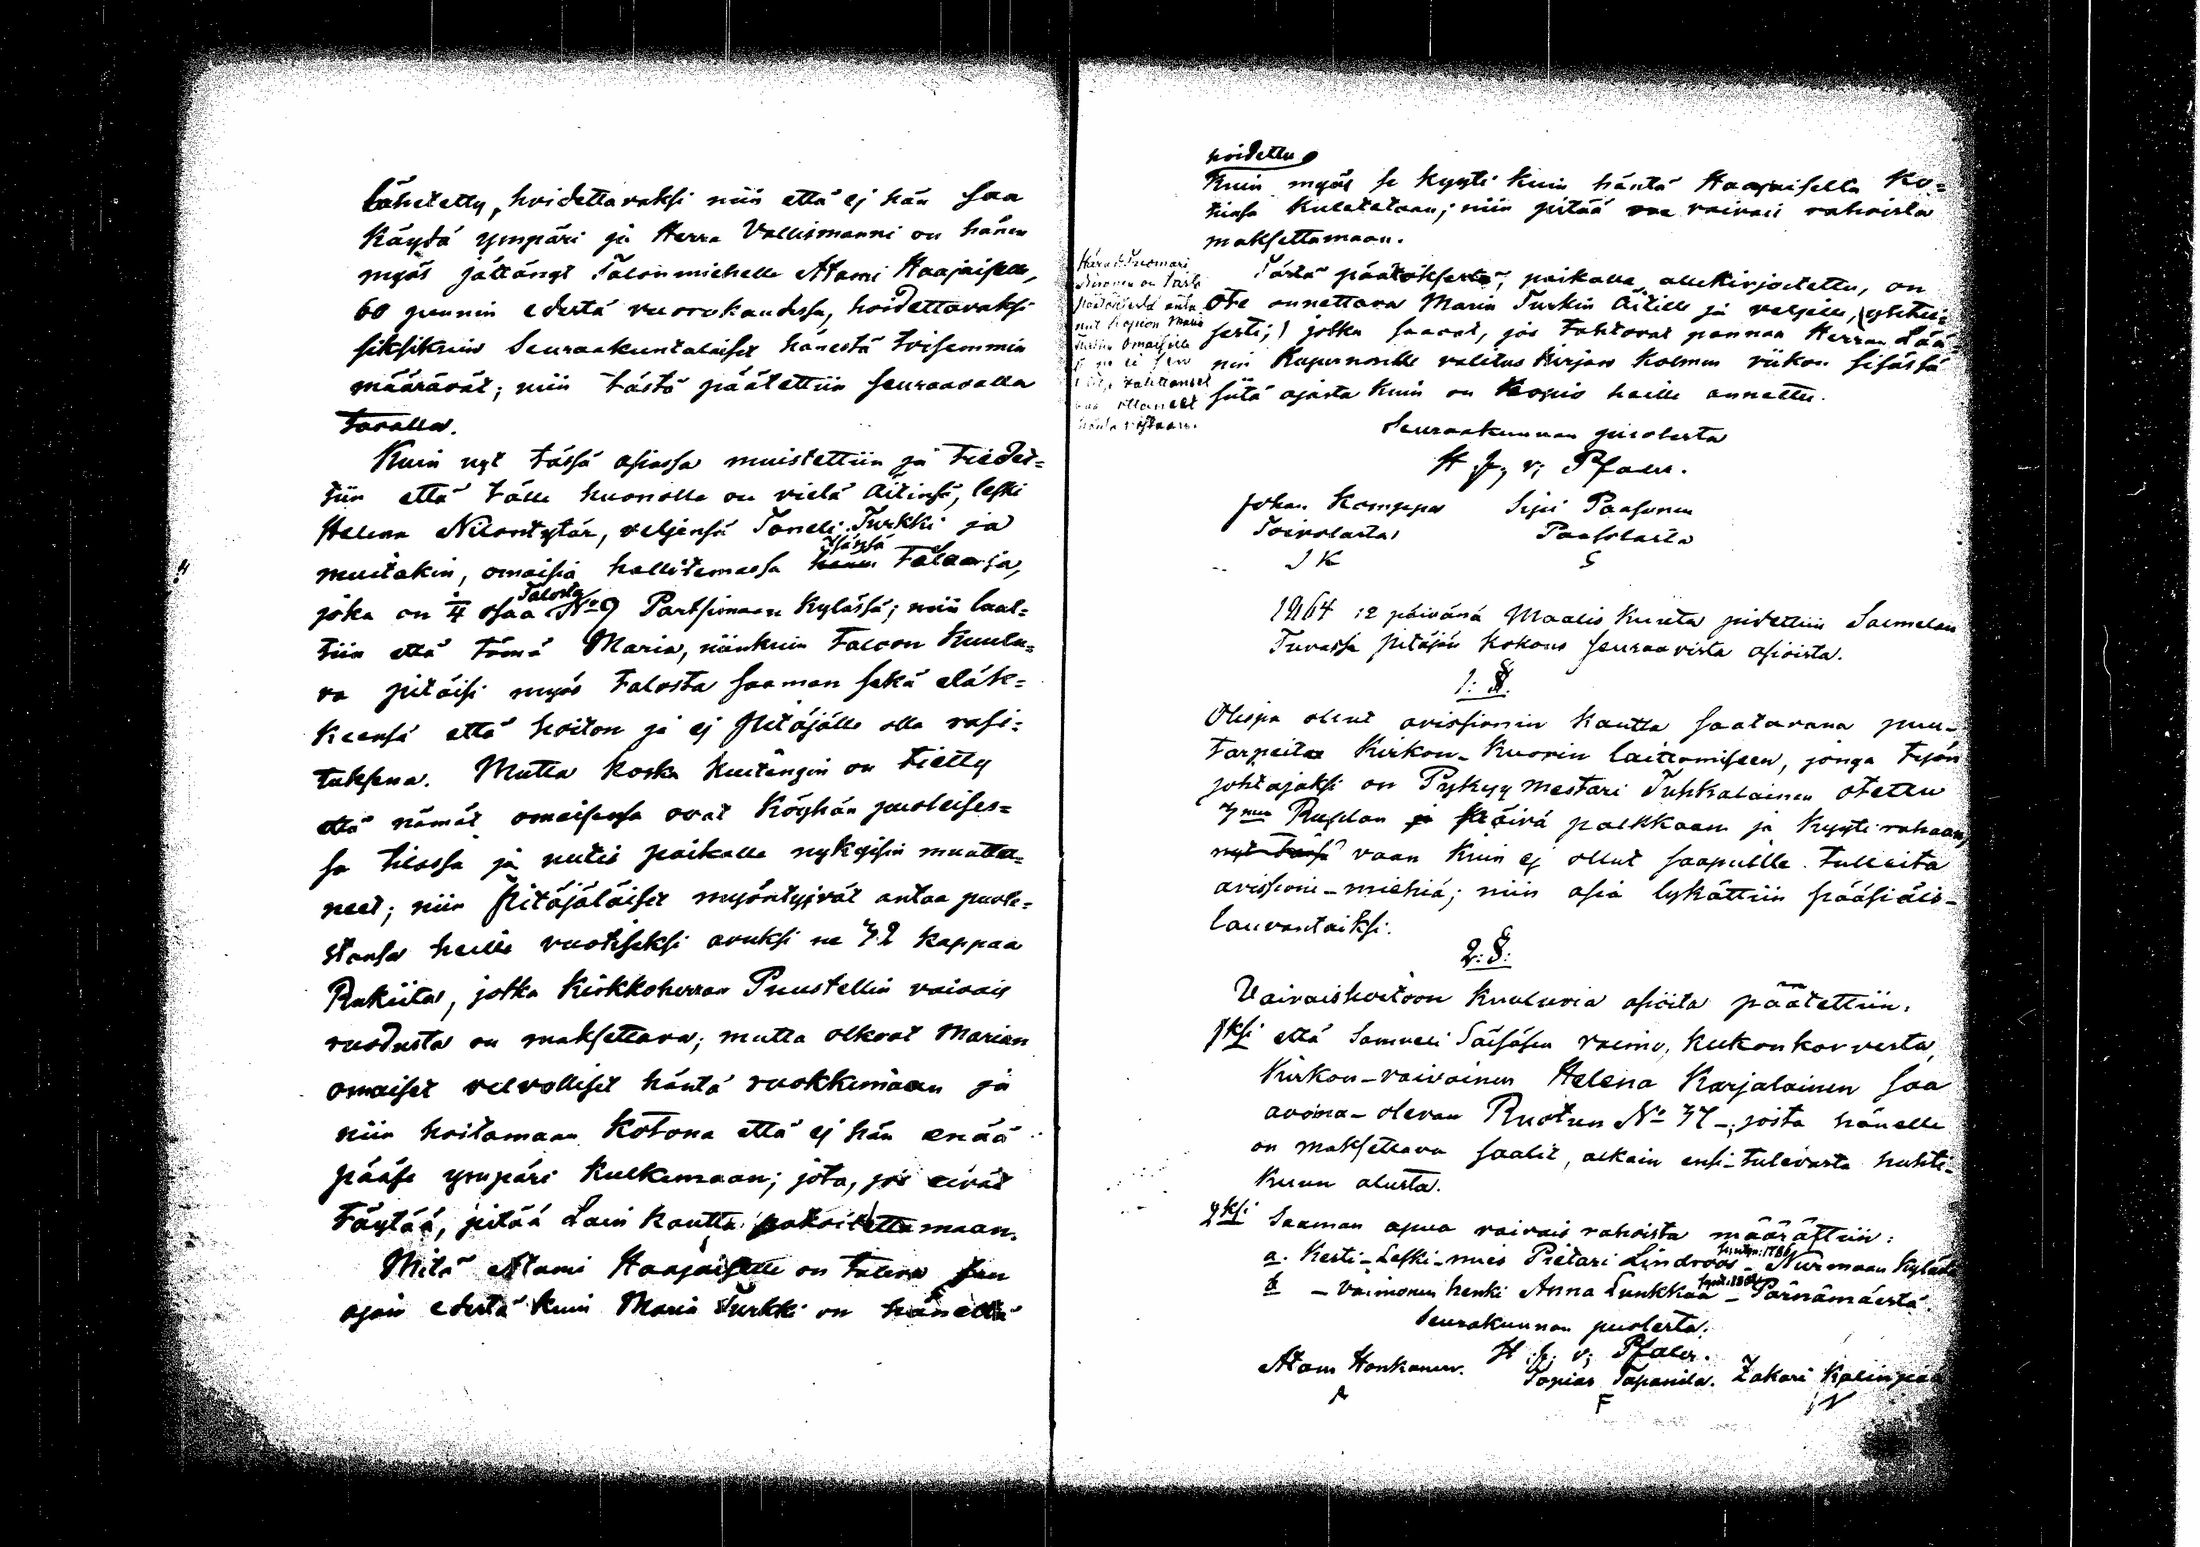 lähetetty, hoidettavaksi niin että ej hän saa
käydä ympäri ja Herra Vallesmanni on hänen
myös jättänyt Talonmiehelle Atami Haajaiselle,
60 pennin edestä vuorokaudessa, hoidettavaksi
siksikuin Seurakuntalaiset hänestä toisemmin
määräävät; niin tästä päätettiin seuraavalla
tavalla.
Kuin nyt tässä asiassa muistettiin ja tiedet=
tiin että tälle huonolle on vielä äitinsä, leski
Helena Nilontytär, veljensä Taneli Turkki ja
muitakin, omaisia hallitsemassa isänsä taloa ja,
joka on 1/4 osaa Talosta No 9 Partsimaan kylässä; niin laat=
tiin että tämä Maria, niinkuin taloon kuulu=
va pitäisi myös talosta saaman sekä eläk=
keensä että hoiton ja ej Pitäjälle olla rasi=
tuksena. Mutta koska kuitängin on tietty
että nämät omaisensa ovat köyhän puoleises=
sa tilassa ja uutis paikalle nykyisin muutta=
neet; niin Pitäjäläiset myöntyivät antaa puole=
stansa heille vuotiseksi avuksi ne 72 kappaa
Rukiita, jotka Kirkkoherran Puustellin vaivais
ruodusta on maksettava; mutta olkoot Marian
omaiset velvolliset häntä ruokkimaan ja
niin hoitamaan kotona että ej hän enää
pääse ympäri kulkemaan; jota, jos eivät
täytää, pitää Lain kautta pakoitettamaan.
Mitä Atami Haajaiselle on tuleva sen
ajan edestä kuin Maria Turkki on hänellä
hoidettu
Kuin myös se kyyti kuin häntä Haajaiselta ko=
tiinsa kuletetaan; niin pitää vaivais rahoista
maksettamaan.
Tästä päätöksestä, paikalla allekirjoitettu, on
Ote annettava Maria Turkin äitille ja veljelle, (yhtei=
sesti;) jotka saavat, jos tahtovat pannaa Herran Lää
nin Kupernorille valitus kirjan kolmen viikon sisässä
siitä ajasta kuin on kopio heille annettu.
Seurakunnan puolesta
H. J. v; Pfaler.
Johan Komppa Sipi Paasonen
Toivolasta Paasolasta
J K
1864 12 päivänä Maalis kuuta pidettiin Salmelan
Tuvassa pitäjän kokous seuraavista asioista.
1: §.
Olispa olleet avisionin kautta saatavana puu-
tarpeita Kirkon-kuorin laittamiseen, jonga työn
johtajaksi on Pykyy mestari Tuhkalainen otettu
Ruplan päivä palkkaan ja kyyti rahaan,
vaan kuin ej ollut saapuille tulleita
avisioni-miehiä; niin asia lykättiin pääsiäis-
lauvantaiksi.
2: §.
Vaivaishoitoon kuuluvia asioita päätettiin.
1ksi että Samueli Säisäsen vaimo, Kukonkorvesta,
Kirkon-vaivainen Helena Karjalainen saa
avoina-olevan Ruotun No 37-, josta hänelle
on maksettava saalit, alkain ensi-tulevasta huhti-
kuun alusta.
2ksi Saaman apua vaivais rahoista määrättiin:
a. Kesti-Leski-mies Pietari Lindroos - Nurmaan kylästä
b - vaimonen henki Anna Lunkkaa - Pärnämäestä.
Seurakunnan puolesta.
H. J. v; Pfaler.
Atam Honkanen. Topias Tapanila. Zakari Kalinpää
A F